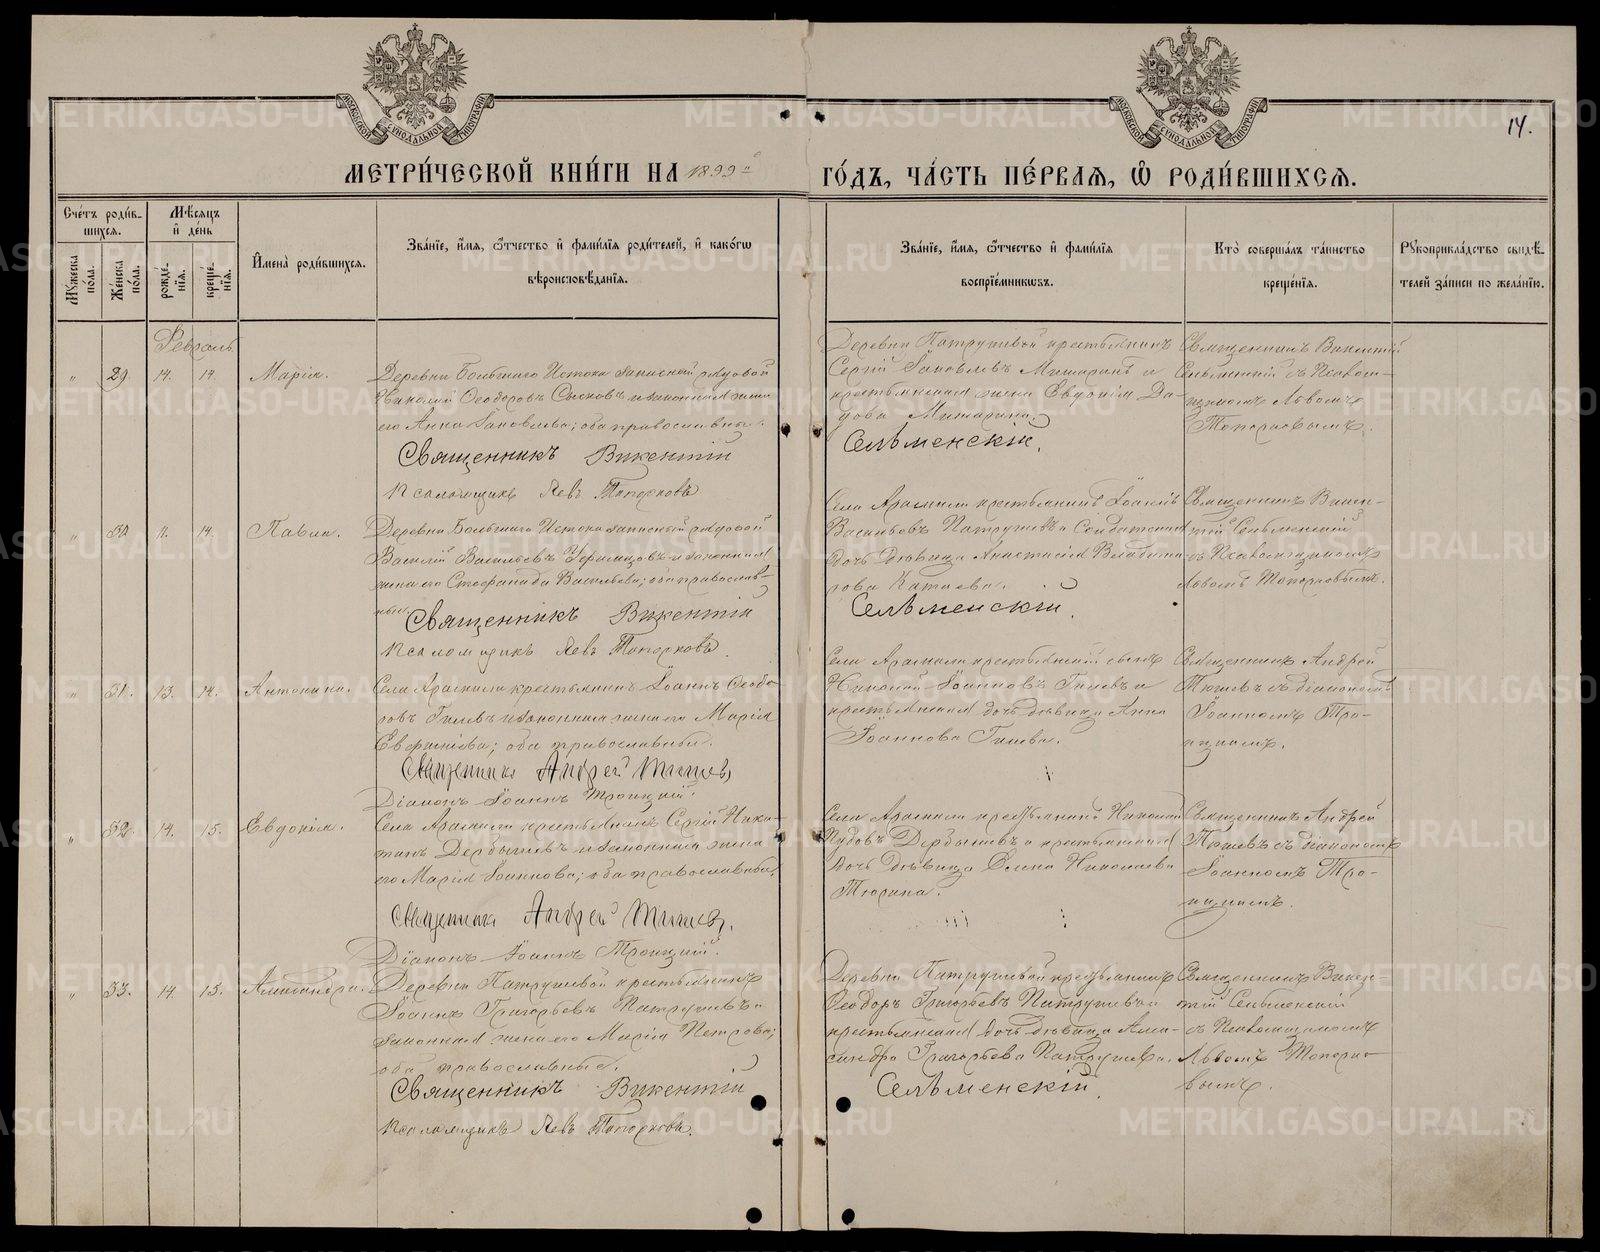 МОСКОВСКОЙ СѴНОДАЛЬНОЙ ТИПОГРАФІИ
МОСКОВСКОЙ СѴНОДАЛЬНОЙ ТИПОГРАФІИ
14.
МЕТРИ́ЧЕСКОЙ КНИ́ГИ НА 1899й
ГО́ДЪ, ЧА́СТЬ ПЕ́РВАЯ, Ѡ РОДИ́ВШИХСЯ.
Сче́тъ роди́в-
шихся.
Му́жеска по́ла.
Же́нска по́ла.
Мѣ́сяцъ и де́нь
рожде́-нія.
креще́-нія.
Имена̀ роди́вшихся.
Зва́ніе, и́мя, ѻ́тчество и фами́лія роди́телей, и како́гѡ
вѣроисповѣ́данія.
Зва́ніе, и́мя, ѻ́тчество и фами́лія
воспріе́мниковъ.
Кто̀ соверша́лъ та́инство
креще́нія.
Рукоприкла́дство свидѣ́-
телей за́писи по жела́нію.
Февраль
" 29. 14. 14. Марія.
Деревни Большаго Истока запасный рядовой
Николай Ѳеодоровъ Сысковъ и законная жена
его Анна Іаковлева; оба православны.
Священникъ Викентій
Псаломщикъ Левъ Топорковъ
Деревни Патрушевой крестьянинъ
Сергій Іаковлевъ Мишаринъ и
крестьянская жена Евдокія Да-
Мишарина.
Сельменскій.
Священникъ Викентій
Сельменскій съ Псалом-
щикомъ Львомъ
Топорковымъ.
" 30. 11. 14. Павла.
Деревни Большаго Истока запасный рядовой
Василій Васильевъ и законная
жена его Стефанида Васильева; оба православ-
ные.
Священникъ Викентій
Псаломщикъ Левъ Топорковъ
Села Арамили крестьянинъ Іоаннъ
Васильевъ Патрушевъ и Солдатская
дочь дѣвица Анастасія
Катаева.
Сельменскій.
Священникъ Викен-
тій Сельменскій
съ Псаломщикомъ
Львомъ Топорковымъ.
" 31. 13. 14. Антонина.
Села Арамили крестьянинъ Іоаннъ Ѳеодо-
ровъ Гилевъ и законная жена его Марія
оба православны.
Священникъ Андрей
Діаконъ Іоаннъ Троицкій.
Села Арамили крестьянскій сынъ
Николай Іоанновъ Гилевъ и
крестьянская дочь дѣвица Анна
Іоаннова Гилева.
Священникъ Андрей
съ діакономъ
Іоанномъ Тро-
ицкимъ.
" 32. 14. 15. Евдокія.
Села Арамили крестьянинъ Сергій Ники-
тинъ Дербышевъ и законная жена
его Марія Іоаннова; оба православны.
Священникъ Андрей
Діаконъ Іоаннъ Троицкій.
Села Арамили крестьянинъ Николай
Дербышевъ и крестьянская
дочь дѣвица Елена Николаева
Тюрина.
Священникъ Андрей
съ діакономъ
Іоанномъ Тро-
ицкимъ.
" 33. 14. 15. Александра.
Деревни Патрушевой крестьянинъ
Іоаннъ Григорьевъ Патрушевъ и
законная жена его Марія Петрова;
оба православные.
Священникъ Викентій
Псаломщикъ Левъ Топорковъ.
Деревни Патрушевой крестьянинъ
Ѳеодоръ Григорьевъ Патрушевъ и
крестьянская дочь дѣвица Алек-
сандра Григорьева Патрушева.
Сельменскій.
Священникъ Викен-
тій Сельменскій
съ Псаломщикомъ
Львомъ Топорко-
вымъ.
METRIKI.GASO-URAL.RU